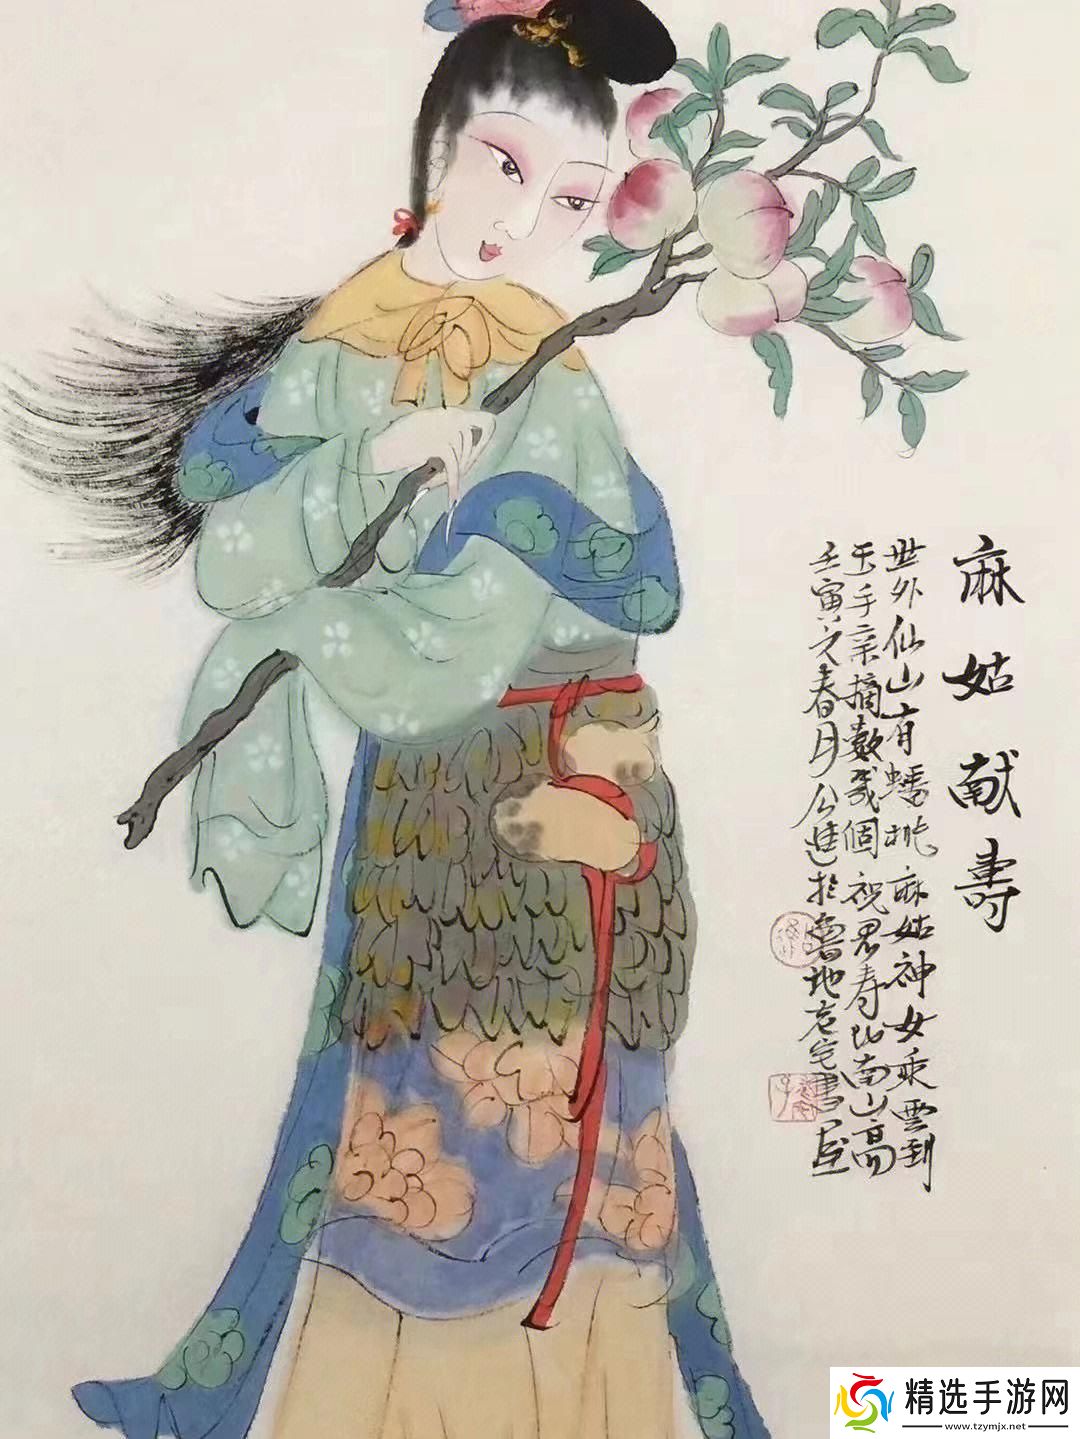 麻姑献壽
世外仙山有蟠桃麻姑神女乘雲到
玉手亲摘數幾個祝君寿比南山高
壬寅之春月公進於魯地
精选手游网
www.tzymjx.net